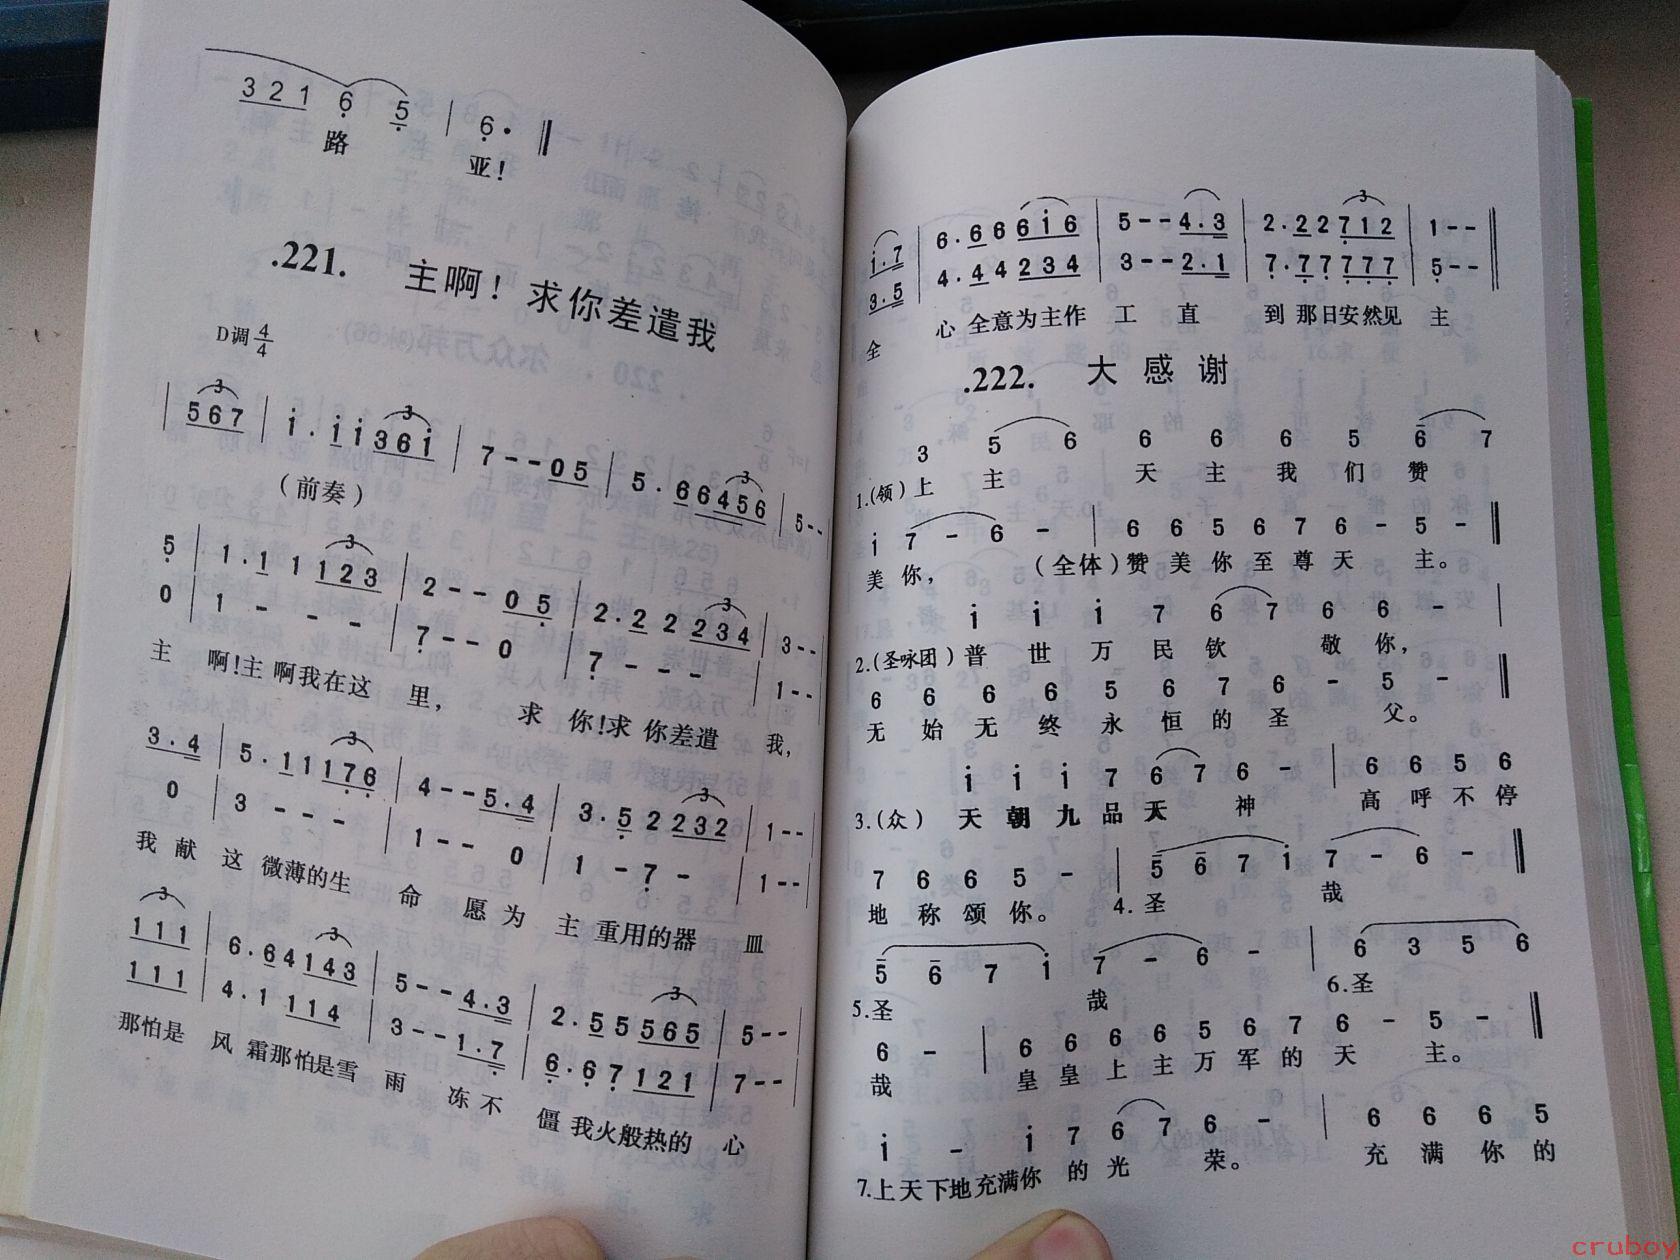 3 2 1 6 5 | 6 · ‖
路 亚！
.221. 主啊！求你差遣我
D调 4/4
3
| 5 6 7 | i · i i 3 6 i | 7 - - 0 5 | 5 . 6 6 4 5 6 | 5 - -
（前奏）
5 | 1 . 1 1 1 2 3 | 2 - - 0 5 | 2 . 2 2 2 3 4 | 3 - -
0 | 1 - - - | 7 - - 0 | 7 - - - | 1 - -
主 啊！主 啊我在这 里， 求 你！求 你差遣 我，
3 . 4 | 5 . 1 1 1 7 6 | 4 - - 5 . 4 | 3 . 5 2 2 3 2 | 1 - -
0 | 3 - - - | 1 - - 0 | 1 - 7 - | 1 - -
我 献 这 微薄的生 命 愿 为 主 重用的器 皿
1 1 1 | 6 . 6 4 1 4 3 | 5 - - 4 . 3 | 2 . 5 5 5 6 5 | 5 - -
1 1 1 | 4 . 1 1 1 4 | 3 - - 1 . 7 | 6 . 6 7 1 2 1 | 7 - -
那怕是 风 霜那怕是雪 雨 冻 不 僵 我火般热的 心
i . 7 | 6 . 6 6 6 i 6 | 5 - - 4 . 3 | 2 . 2 2 7 1 2 | 1 - - ‖
3 . 5 | 4 . 4 4 2 3 4 | 3 - - 2 . 1 | 7 . 7 7 7 7 7 | 5 - - ‖
全 心 全意为主作 工 直 到 那日安然见 主
.222. 大感谢
3 5 6 6 6 6 5 6 7
1.（领）上 主 天 主 我 们 赞
i 7 - 6 - | 6 6 5 6 7 6 - 5 - ‖
美 你， （全体）赞 美 你 至 尊 天 主。
i i i 7 6 7 6 6 - |
2.（圣咏团）普 世 万 民 钦 敬 你，
6 6 6 6 5 6 7 6 - 5 - ‖
无 始 无 终 永 恒 的 圣 父。
i i i 7 6 7 6 - | 6 6 5 6
3.（众） 天 朝 九 品 天 神 高 呼 不 停
7 6 6 5 - | 5 6 7 i 7 - 6 - ‖
地 称 颂 你。 4.圣 哉
5 6 7 i 7 - 6 - | 6 3 5 6
5.圣 哉 6.圣
6 - | 6 6 6 6 5 6 7 6 - 5 - ‖
哉 皇 皇 上 主 万 军 的 天 主。
i - i 7 6 7 6 - | 6 6 6 5
7.上天下地充满你 的 光 荣。 充 满 你 的
cruboy